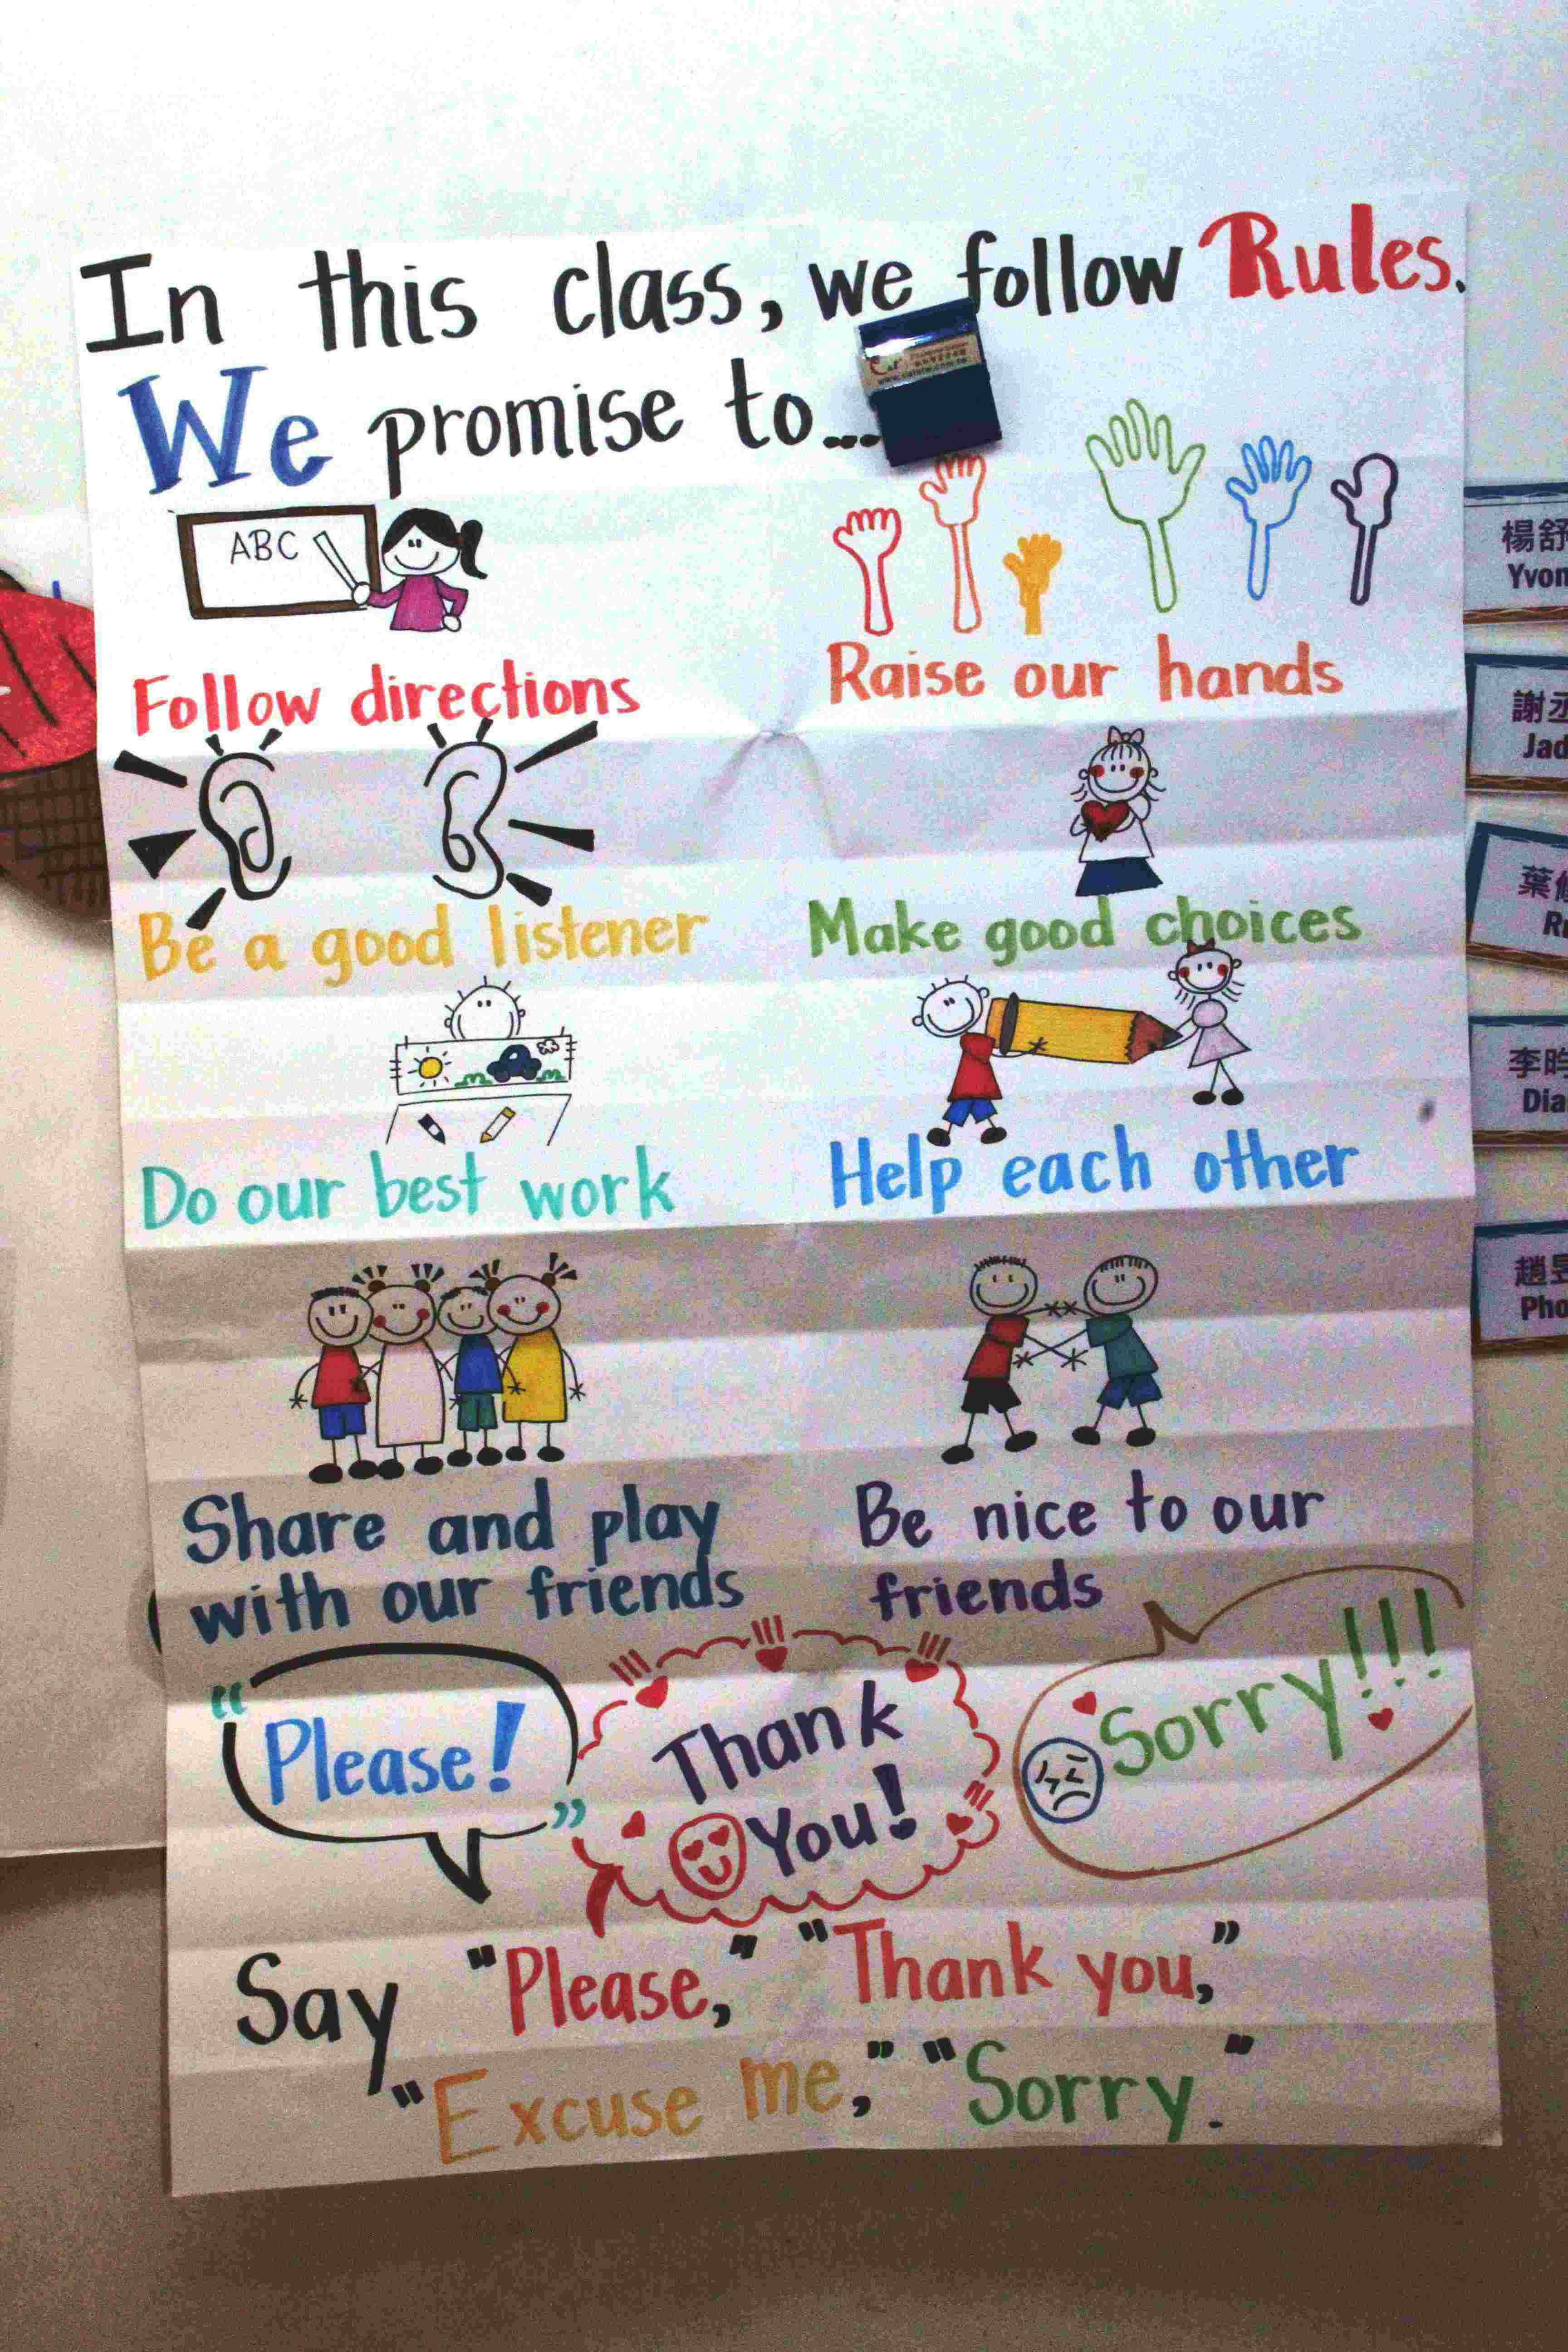 In this class, we follow Rules.
We promise to...
ABC
Follow directions
Raise our hands
Be a good listener
Make good choices
Do our best work
Help each other
Share and play
with our friends
Be nice to our
friends
"Please!"
Thank
You!
Sorry!!!
Say "Please," "Thank you,"
"Excuse me," "Sorry."
楊舒
Yvon
謝丞
Jad
葉
李
Dia
趙
Pho